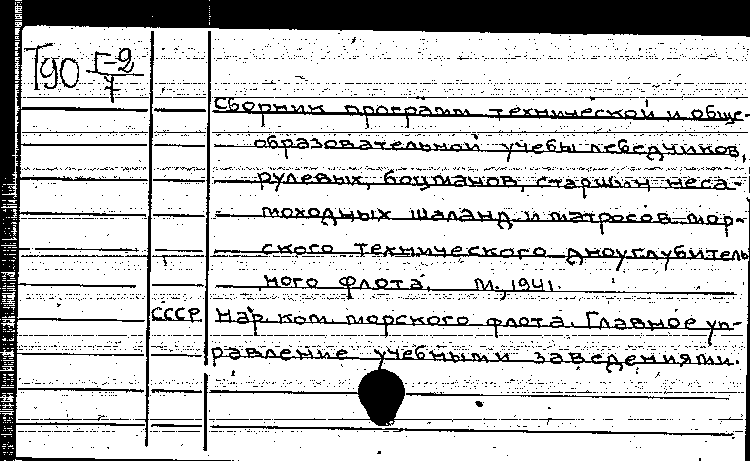 Т90 Г-2/7
Сборник программ технической и обще-
образовательной учебы лебедчиков,
рулевых, боцманов, старшин неса-
моходных шаланд и матросов мор-
ского технического дноуглубитель
ного флота. М., 1941.
СССР. Нар. ком. морского флота. Главное уп-
равление учебными заведениями.